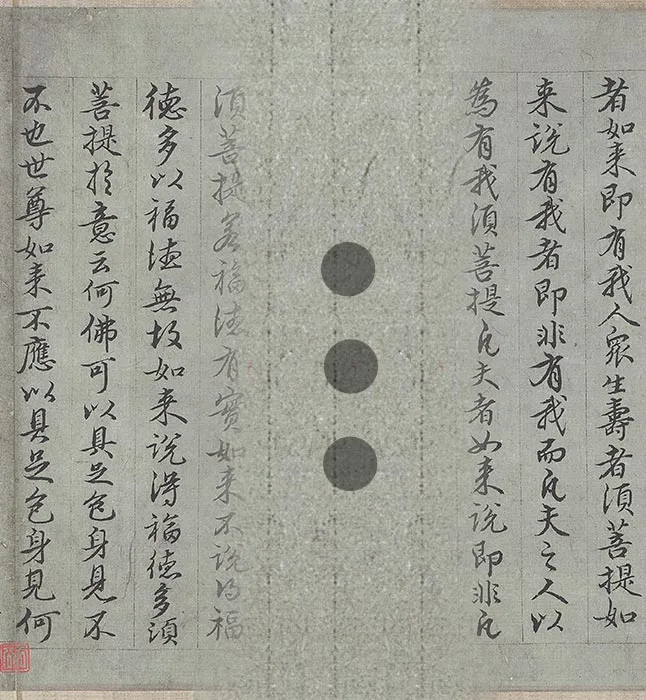 者如来即有我人眾生壽者須菩提如
来説有我者即非有我而凡夫之人以
為有我須菩提凡夫者如来説即非凡
須菩提若福德有實如来不説得福
德多以福德無故如来説得福德多須
菩提於意云何佛可以具足色身見不
不也世尊如来不應以具足色身見何